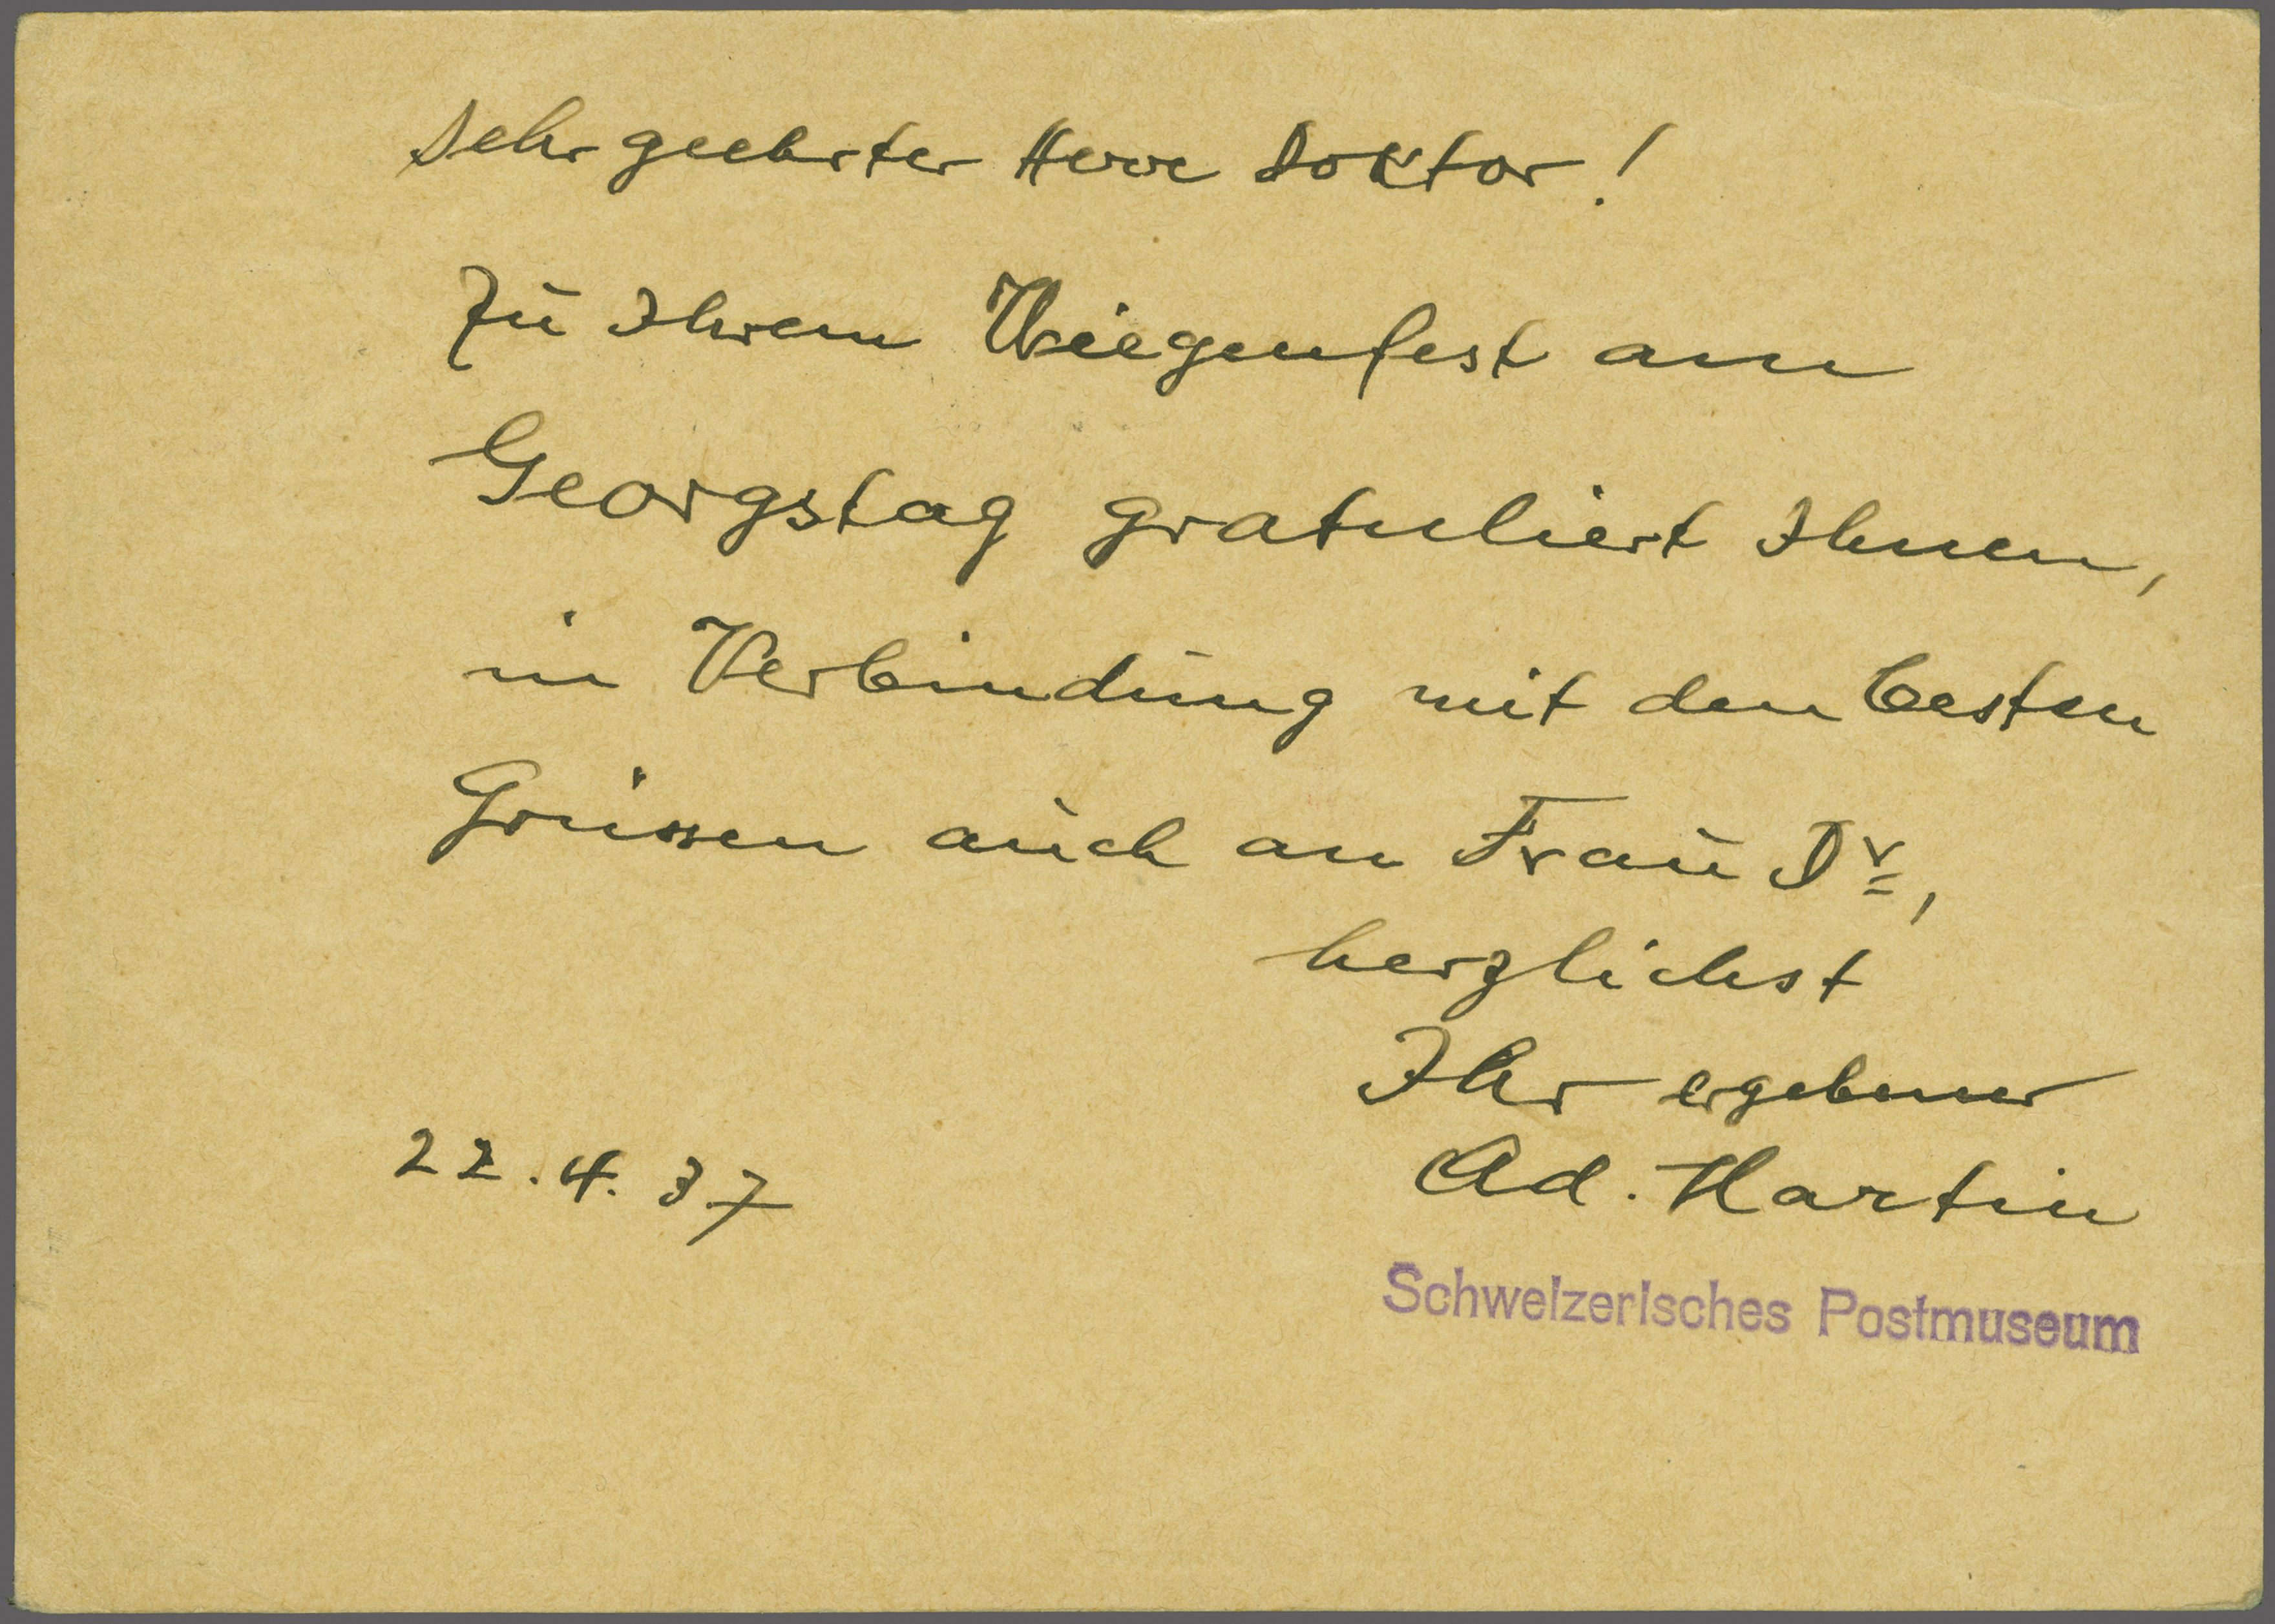 Sehr geehrter Herr Doktor!
Zu Ihrem Wiegenfest am
Georgstag gratuliert Ihnen,
in Verbindung mit den besten
Grüssen auch an Frau Dr,
herzlichst
Ihr ergebener
Ad. Martin
22.4.37
Schweizerisches Postmuseum